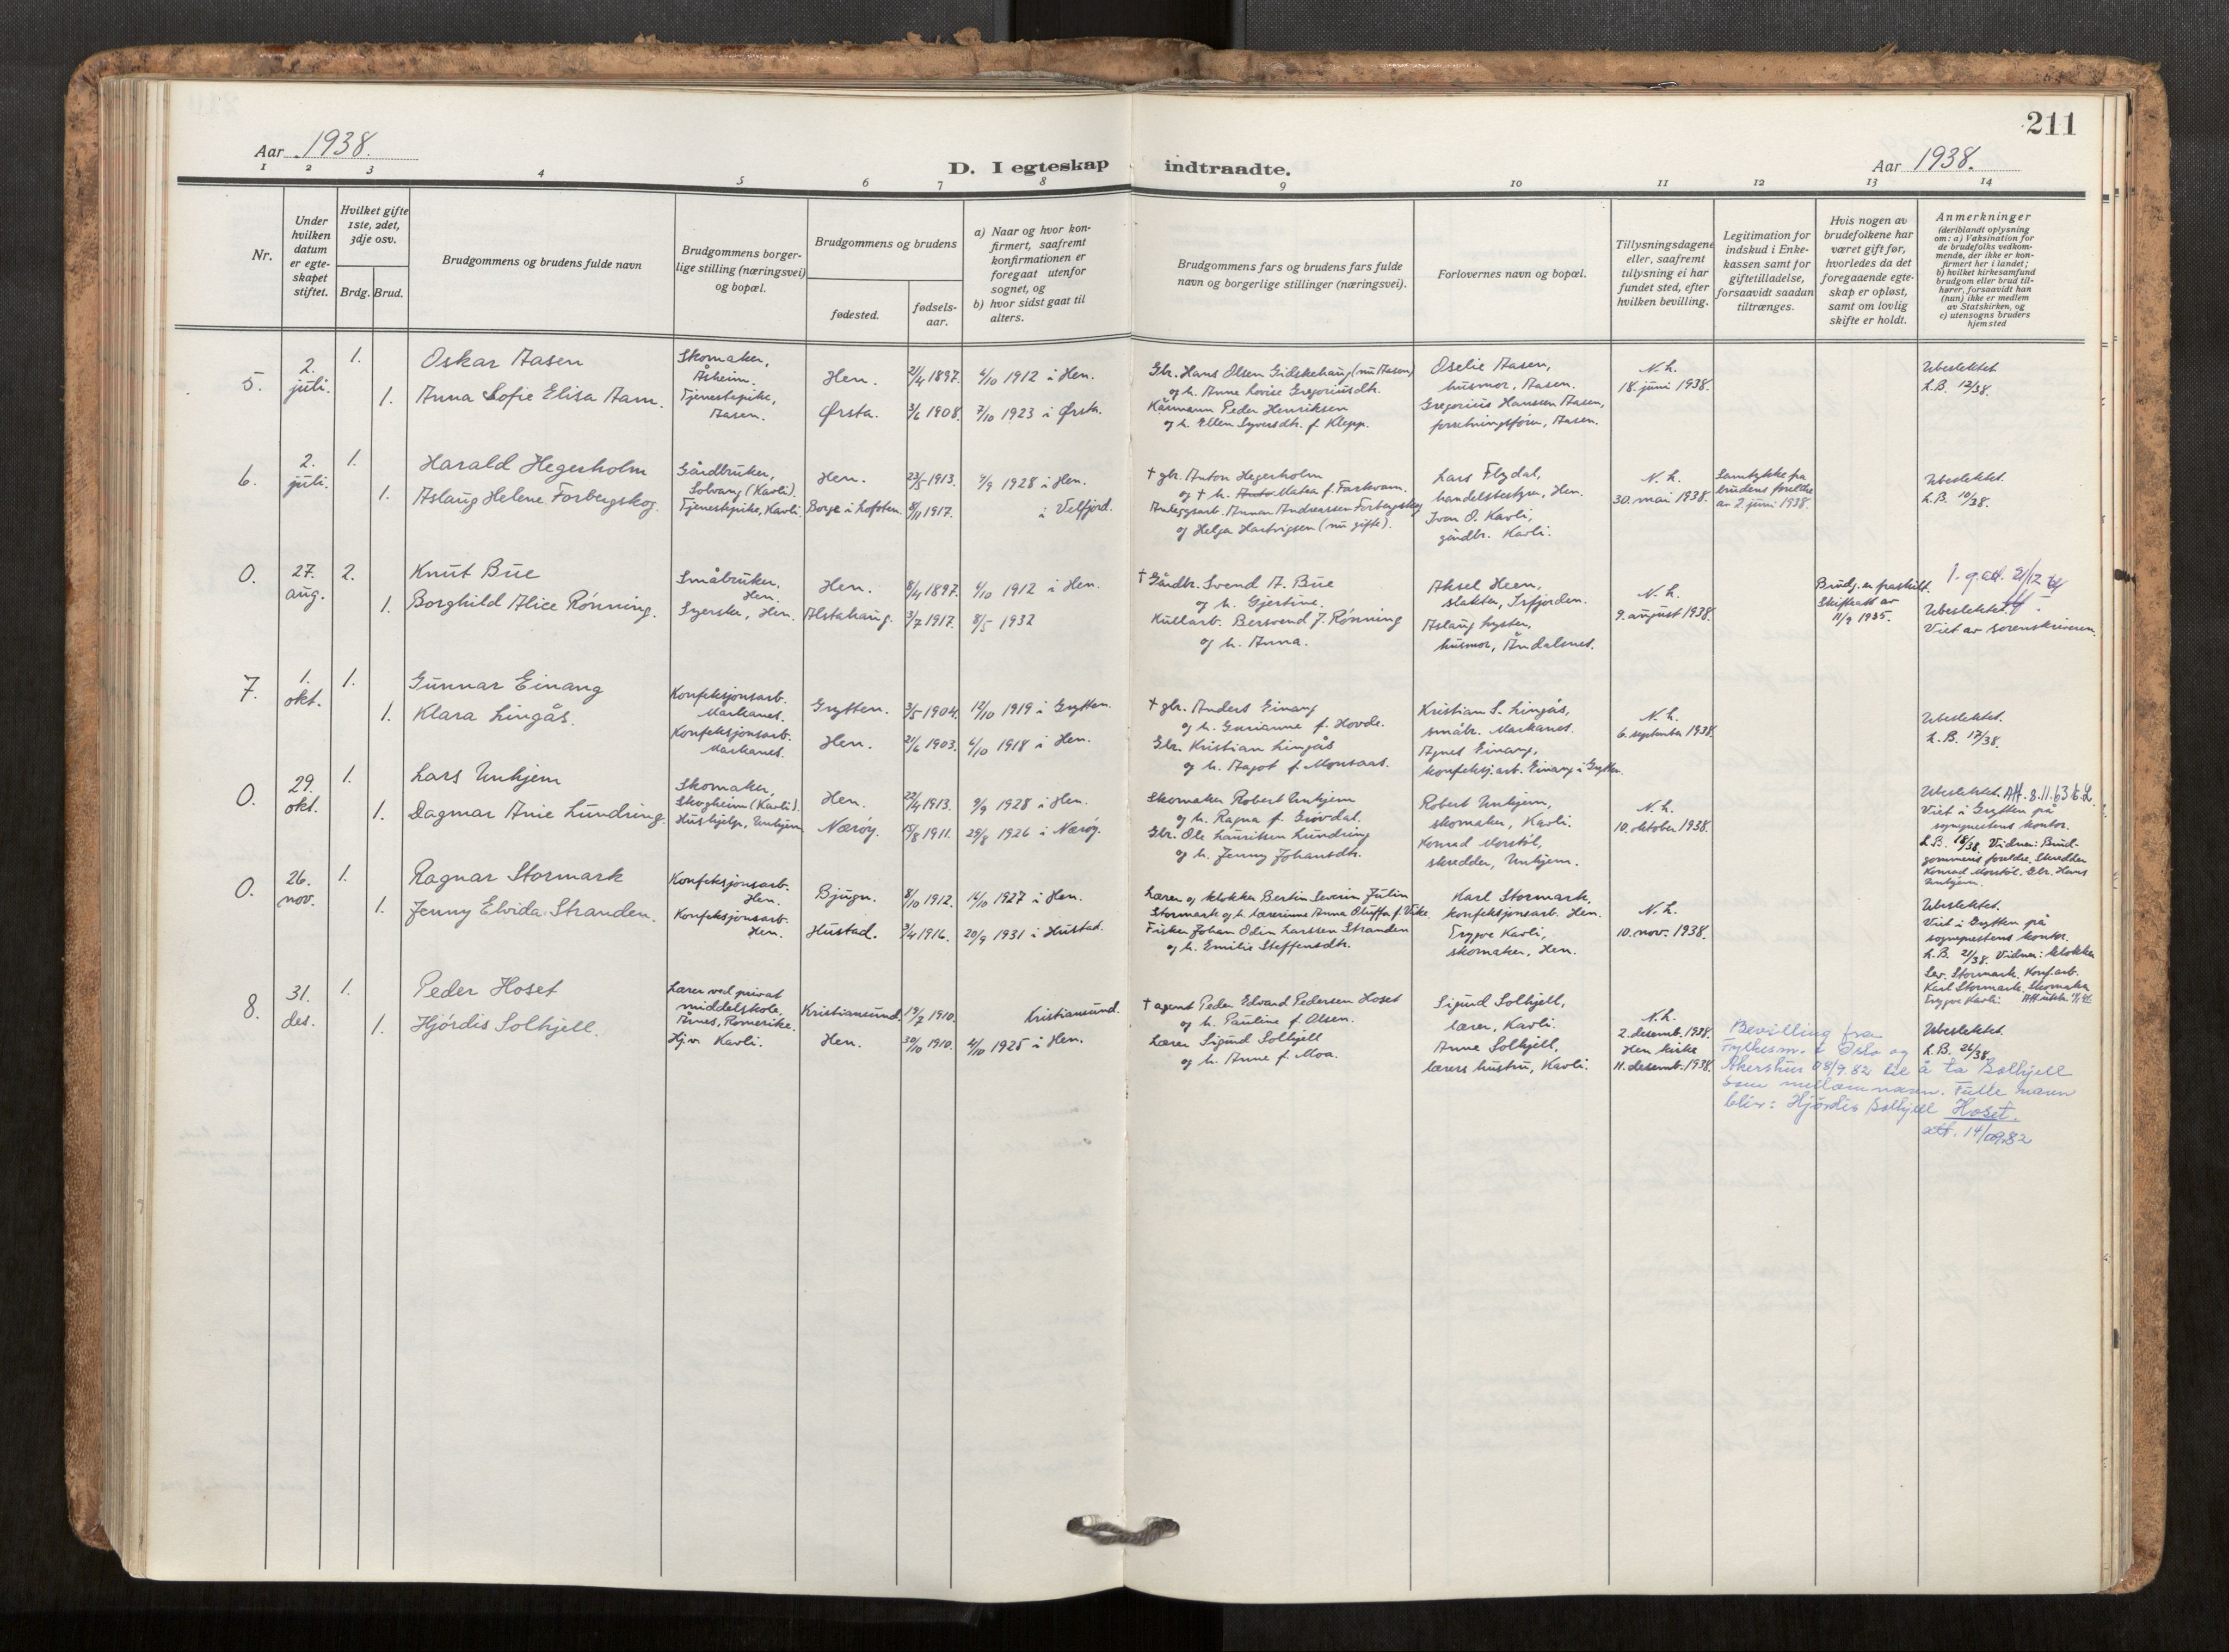 211
Aar 1938.
D. I egteskap indtraadte.
Aar 1938.
1 2 3 4 5 6 7 8 9 10 11 12 13 14
Nr.
Under
hvilken
datum
er egte-
skapet
stiftet.
Hvilket gifte
1ste, 2det,
3dje osv.
Brdg. Brud.
Brudgommens og brudens fulde navn
Brudgommens borger-
lige stilling (næringsvei)
og bopæl.
Brudgommens og brudens
fødested.
fødsels-
aar.
a) Naar og hvor kon-
firmert, saafremt
konfirmationen er
foregaat utenfor
sognet, og
b) hvor sidst gaat til
alters.
Brudgommens fars og brudens fars fulde
navn og borgerlige stillinger (næringsvei).
Forlovernes navn og bopæl.
Tillysningsdagene
eller, saafremt
tillysning ei har
fundet sted, efter
hvilken bevilling.
Legitimation for
indskud i Enke-
kassen samt for
giftetilladelse,
forsaavidt saadan
tiltrænges.
Hvis nogen av
brudefolkene har
været gift før,
hvorledes da det
foregaaende egte-
skap er opløst,
samt om lovlig
skifte er holdt.
Anmerkninger
(deriblandt oplysning
om: a) Vaksination for
de brudefolks vedkom-
mende, der ikke er kon-
firmert her i landet;
b) hvilket kirkesamfund
brudgom eller brud til-
hører, forsaavidt han
(hun) ikke er medlem
av Statskirken, og
c) utensogns bruders
hjemsted
5.
2.
juli.
1.
Oskar Aasen
Skomaker,
Åsheim.
Hen.
21/4 1897.
6/10 1912 i Hen.
1.
Anna Sofie Elisa Aam.
Tjenestepike,
Aasen.
Ørsta.
3/6 1908.
7/10 1923 i Ørsta.
Gbr. Hans Olsen Gidskehaug (nu Aasen)
og h. Anne Lovise Gregoriusdtr.
Kårmann Peder Henriksen
og h. Ellen Syversdtr. f. Klepp.
Oselie Aasen,
husmor, Aasen.
Gregorius Hanssen Aasen,
forretningsforer, Aasen.
N. h.
18. juni 1938.
Ubeslektet
L.B. 12/38.
6.
2.
juli.
1.
Harald Hegerholm
Gårdbruker,
Solvang (Kavli).
Hen.
23/5 1913.
4/9 1928 i Hen.
1.
Aslaug Helene Forbergskog.
Tjenestepike, Kavli.
Borge i Lofoten.
8/11 1917.
i Velfjord.
† gbr. Anton Hegerholm
og † h. Matea f. Farkvam.
Anleggsarb. Annan Andreassen Forbergskog
og Helga Hartvigsen (nu gifte).
Lars Flydal,
handelsbestyrer, Hen.
Ivar O. Kavli,
gårdbr. Kavli.
N. h.
30. mai 1938.
Samtykke fra
brudens foreldre
av 2. juni 1938.
Ubeslektet.
L.B. 10/38.
0.
27.
aug.
2.
Knut Bue
Småbruker.
Hen.
Hen.
8/4 1897.
6/10 1912 i Hen.
1.
Borghild Alice Rønning.
Syerske, Hen.
Alstahaug.
3/7 1917.
8/5 1932
† Gårdbr. Svend A. Bue
og h. Gjertine.
Kullarb. Bersvend J. Rønning
og h. Anna.
Aksel Heen,
slakter, Isfjorden.
Aslaug
husmor, Åndalsnes.
N. h.
9. august 1938.
Brudg. er fraskilt.
Skifteatt av
11/9 1935.
Ubeslektet.
Viet av sorenskriveren.
7.
1.
okt.
1.
Gunnar Einang
Konfeksjonsarb.
Markanes.
Grytten.
3/5 1904.
12/10 1919 i Grytten.
1.
Klara Lingås.
Konfeksjonsarb.
Markanes.
Hen.
21/6 1903.
6/10 1918 i Hen.
† gbr. Anders Einang
og h. Gurianne f. Hovde.
Gbr. Kristian Lingås
og h. Aagot f. Monsaas.
Kristian S. Lingås,
småbr. Markanes.
Agnes Einang,
konfeksj.arb. Einang i Grytten.
N. h.
6. september 1938.
Ubeslektet.
L.B. 17/38.
0.
29.
okt.
1.
Lars Unhjem
Skomaker,
Skogheim (Kavli).
Hen.
22/4 1913.
9/9 1928 i Hen.
1.
Dagmar Anie Lundring.
Hushjelp, Unhjem
Nærøy.
15/8 1911.
29/8 1926 i Nærøy.
Skomaker Robert Unhjem
og h. Ragna f. Grøvdal.
Gbr. Ole Lauritsen Lundring
og h. Jenny Johansdtr.
Robert Unhjem,
skomaker, Kavli.
Konrad Morstøl,
skredder, Unhjem.
N. h.
10. oktober 1938.
Ubeslektet. Att. 8.11.63
Viet i Grytten på
sogneprestens kontor.
L.B. 18/38. Vidner: Brud-
gommens foreldre, Skredder
Konrad Morstøl. Gbr. Hans
Unhjem.
0.
26.
nov.
1.
Ragnar Stormark
Konfeksjonsarb.
Hen.
Bjugn.
8/10 1912.
16/10 1927 i Hen.
1.
Jenny Elvida Stranden.
Konfeksjonsarb.
Hen.
Hustad.
3/4 1916.
20/9 1931 i Hustad.
Lærer og klokker Bertin Severin Julin
Stormark og h. lærerinne Anna Oluffa f. Vike.
Fisker Johan Odin Larssen Stranden
og h. Emilie Steffensdtr.
Karl Stormark,
konfeksjonsarb. Hen.
Trygve Kavli,
skomaker, Hen.
N. h.
10. nov. 1938.
Ubeslektet.
Viet i Grytten på
sogneprestens kontor.
L.B. 21/38. Vidner: klokker
Sev. Stormark, Konf.arb.
Karl Stormark. Skomaker
Trygve Kavli
8.
31.
des.
1.
Peder Hoset
Lærer ved privat
middelskole,
Årnes, Romerike.
Kristiansund.
19/7 1910.
Kristiansund.
1.
Hjørdis Solhjell.
Hj.v. Kavli.
Hen.
30/10 1910.
4/10 1925 i Hen.
† agent Peder Edvard Pedersen Hoset
og h. Pauline f. Olsen.
Lærer Sigurd Solhjell
og h. Anne f. Moa.
Sigurd Solhjell,
lærer, Kavli.
Anne Solhjell,
lærers hustru, Kavli.
N. h.
2. desemb. 1938.
Hen kirke
11. desemb. 1938.
Ubeslektet.
L.B. 26/38.
Bevilling fra
Fylkesm. i Oslo og
Akershus 08/9.82 til å ta Solhjell
som mellomnavn. Fulle navn
blir: Hjørdis Solhjell Hoset.
att. 14/09.82